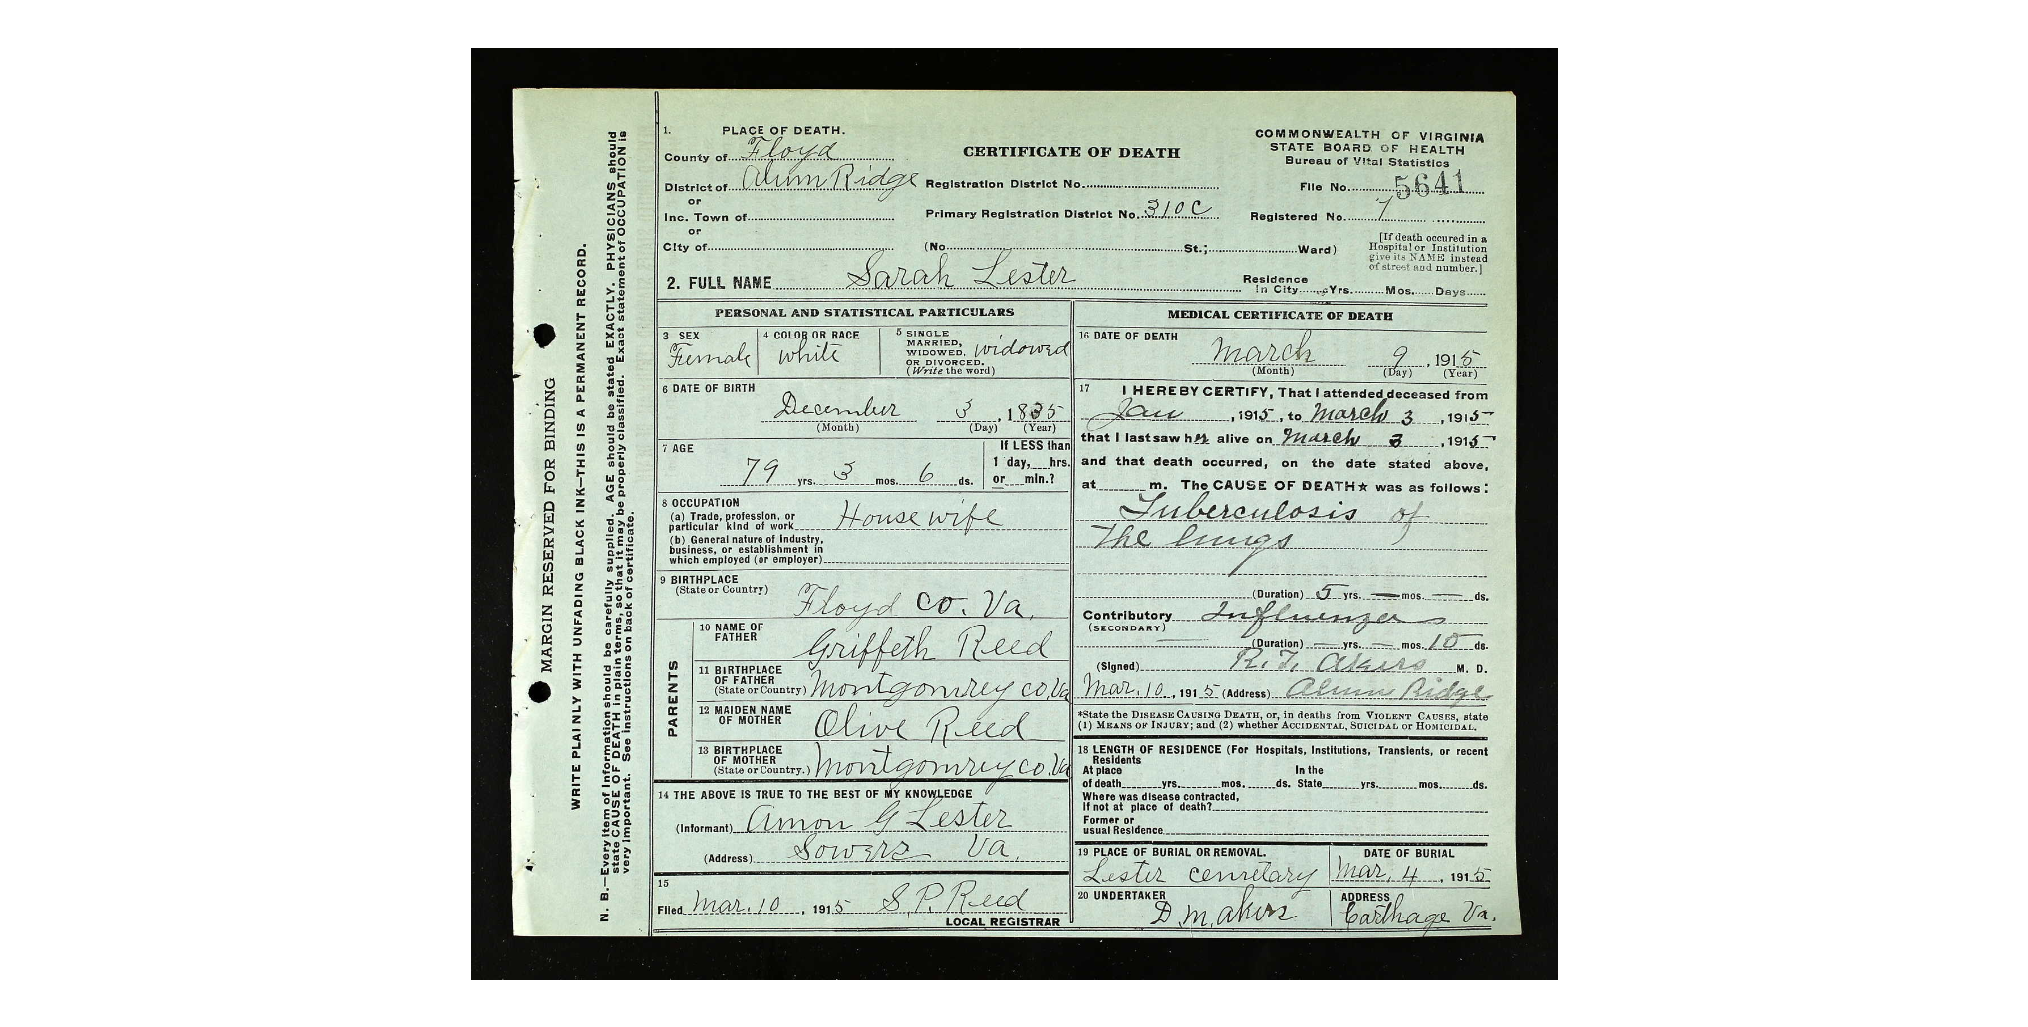 MARGIN RESERVED FOR BINDING
WRITE PLAINLY WITH UNFADING BLACK INK—THIS IS A PERMANENT RECORD.
N. B.—Every item of information should be carefully supplied. AGE should be stated EXACTLY. PHYSICIANS should
state CAUSE OF DEATH in plain terms, so that it may be properly classified. Exact statement of OCCUPATION is
very important. See instructions on back of certificate.
1. PLACE OF DEATH.
County of Floyd
District of Alum Ridge
or
Inc. Town of
or
City of
CERTIFICATE OF DEATH
Registration District No.
Primary Registration District No. 310C
(No. St.; Ward)
COMMONWEALTH OF VIRGINIA
STATE BOARD OF HEALTH
Bureau of Vital Statistics
File No. 5641
Registered No. 7
[If death occured in a
Hospital or Institution
give its NAME instead
of street and number.]
2. FULL NAME Sarah Lester
Residence
In City Yrs. Mos. Days
PERSONAL AND STATISTICAL PARTICULARS
3 SEX
Female
4 COLOR OR RACE
white
5 SINGLE
MARRIED,
WIDOWED,
OR DIVORCED.
(Write the word)
widowed
6 DATE OF BIRTH
December 3, 1835
(Month) (Day) (Year)
7 AGE
79 yrs. 3 mos. 6 ds.
If LESS than
1 day, hrs.
or min.?
8 OCCUPATION
(a) Trade, profession, or
particular kind of work Housewife
(b) General nature of industry,
business, or establishment in
which employed (or employer)
9 BIRTHPLACE
(State or Country)
Floyd co. Va.
PARENTS
10 NAME OF
FATHER
Griffeth Reed
11 BIRTHPLACE
OF FATHER
(State or Country) Montgomrey co, Va
12 MAIDEN NAME
OF MOTHER
Olive Reed
13 BIRTHPLACE
OF MOTHER
(State or Country.) Montgomrey co. Va
14 THE ABOVE IS TRUE TO THE BEST OF MY KNOWLEDGE
(Informant) Amon G Lester
(Address) Sowers Va.
15
Filed Mar. 10, 1915 S. P. Reed
LOCAL REGISTRAR
MEDICAL CERTIFICATE OF DEATH
16 DATE OF DEATH
March 9, 1915
(Month) (Day) (Year)
17 I HEREBY CERTIFY, That I attended deceased from
Jan, 1915, to March 3, 1915
that I last saw her alive on March 3, 1915
and that death occurred, on the date stated above,
at m. The CAUSE OF DEATH★ was as follows:
Tuberculosis of
the lungs
(Duration) 5 yrs. — mos. — ds.
Contributory Influenza
(SECONDARY)
(Duration) — yrs. — mos. 10 ds.
(Signed) R. T. Akers M. D.
Mar. 10, 1915 (Address) Alum Ridge
*State the DISEASE CAUSING DEATH, or, in deaths from VIOLENT CAUSES, state
(1) MEANS OF INJURY; and (2) whether ACCIDENTAL, SUICIDAL or HOMICIDAL.
18 LENGTH OF RESIDENCE (For Hospitals, Institutions, Transients, or recent
Residents
At place In the
of death yrs. mos. ds. State yrs. mos. ds.
Where was disease contracted,
If not at place of death?
Former or
usual Residence
19 PLACE OF BURIAL OR REMOVAL.
Lester cemetary
DATE OF BURIAL
Mar. 4, 1915
20 UNDERTAKER
D. M. Akers
ADDRESS
Carthage Va.